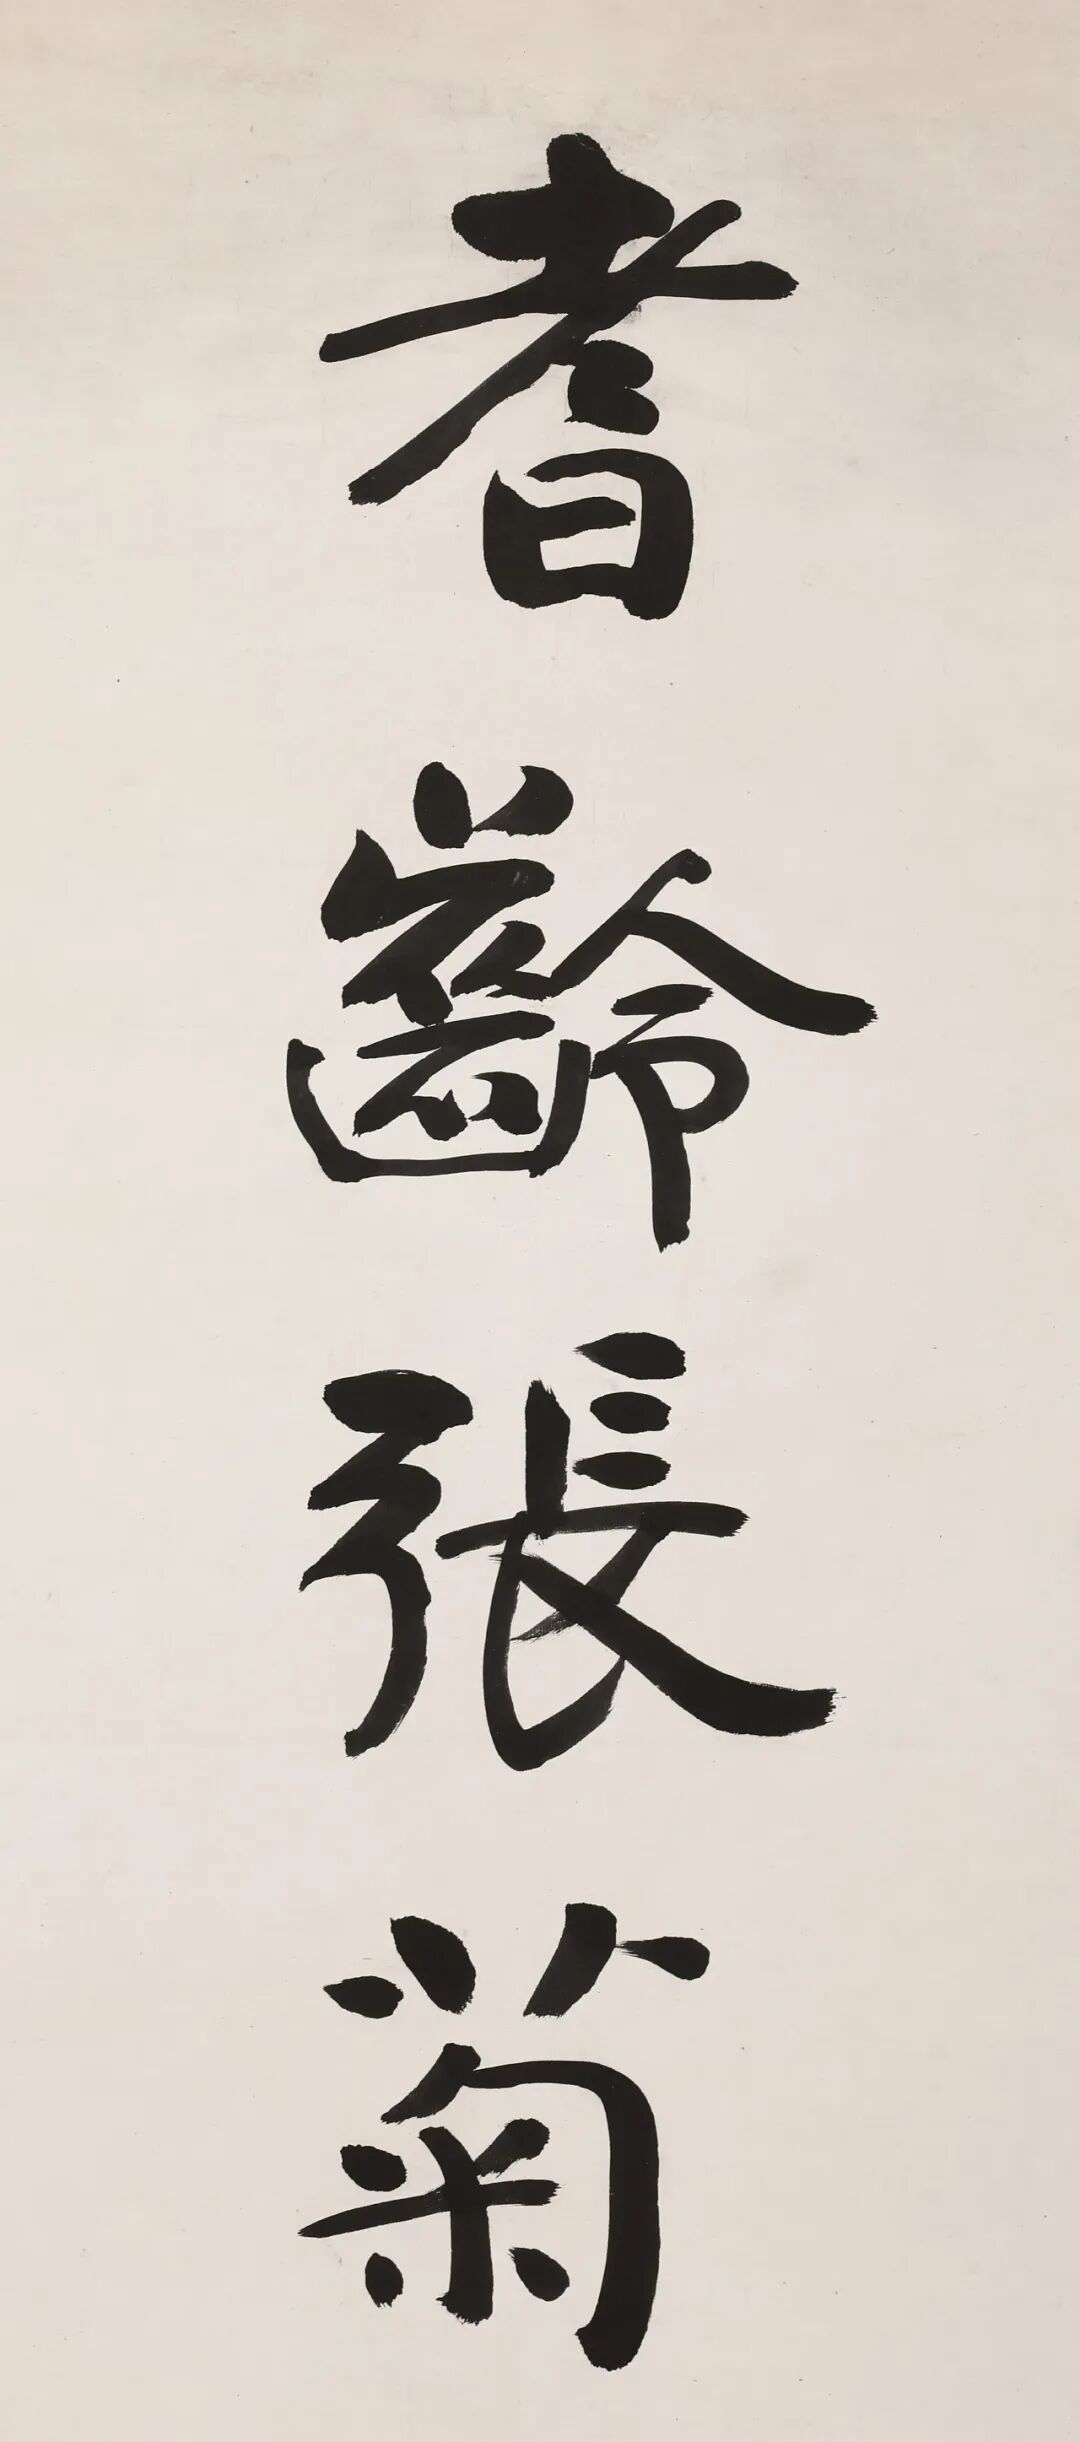 耆齡張菊